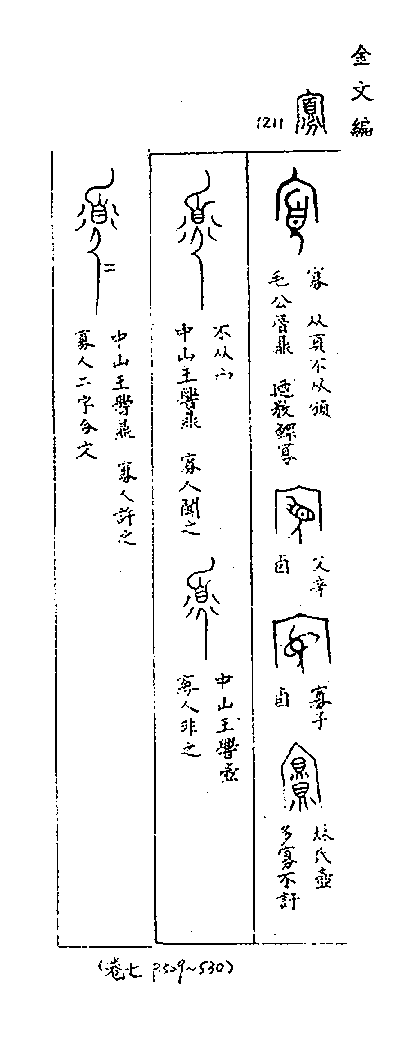 金文編
1211
寡 从頁不从頒
毛公𢉩鼎 迺敄鰥寡
父辛
卣
寡子
卣
㭉氏壺
多寡不訏
不从宀
中山王𰯼鼎 寡人聞之
中山王𰯼壺
寡人非之
中山王𰯼鼎 寡人許之
寡人二字合文
(卷七 P.529~530)